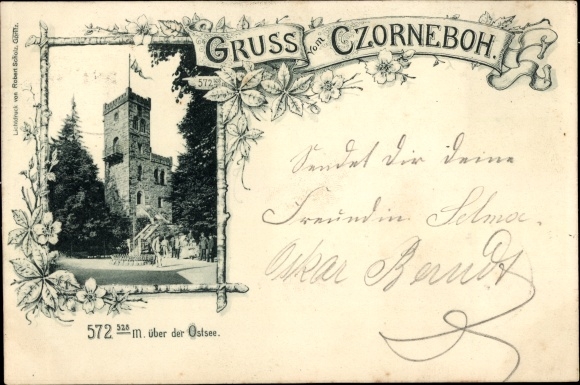 GRUSS vom CZORNEBOH.
572
Lichtdruck von Robert Scholz, Görlitz.
Sendet Dir deine
Freundin Selma.
Oskar Berndt
572 528 m. über der Ostsee.